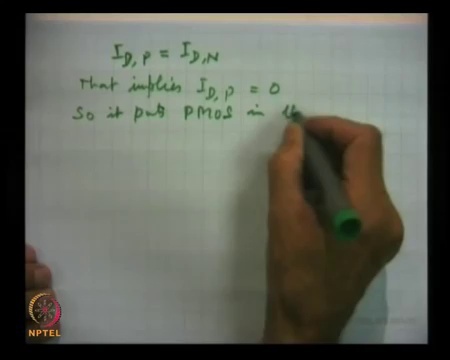 I_D,P = I_D,N
That implies I_D,P = 0
So it puts PMOS in
NPTEL